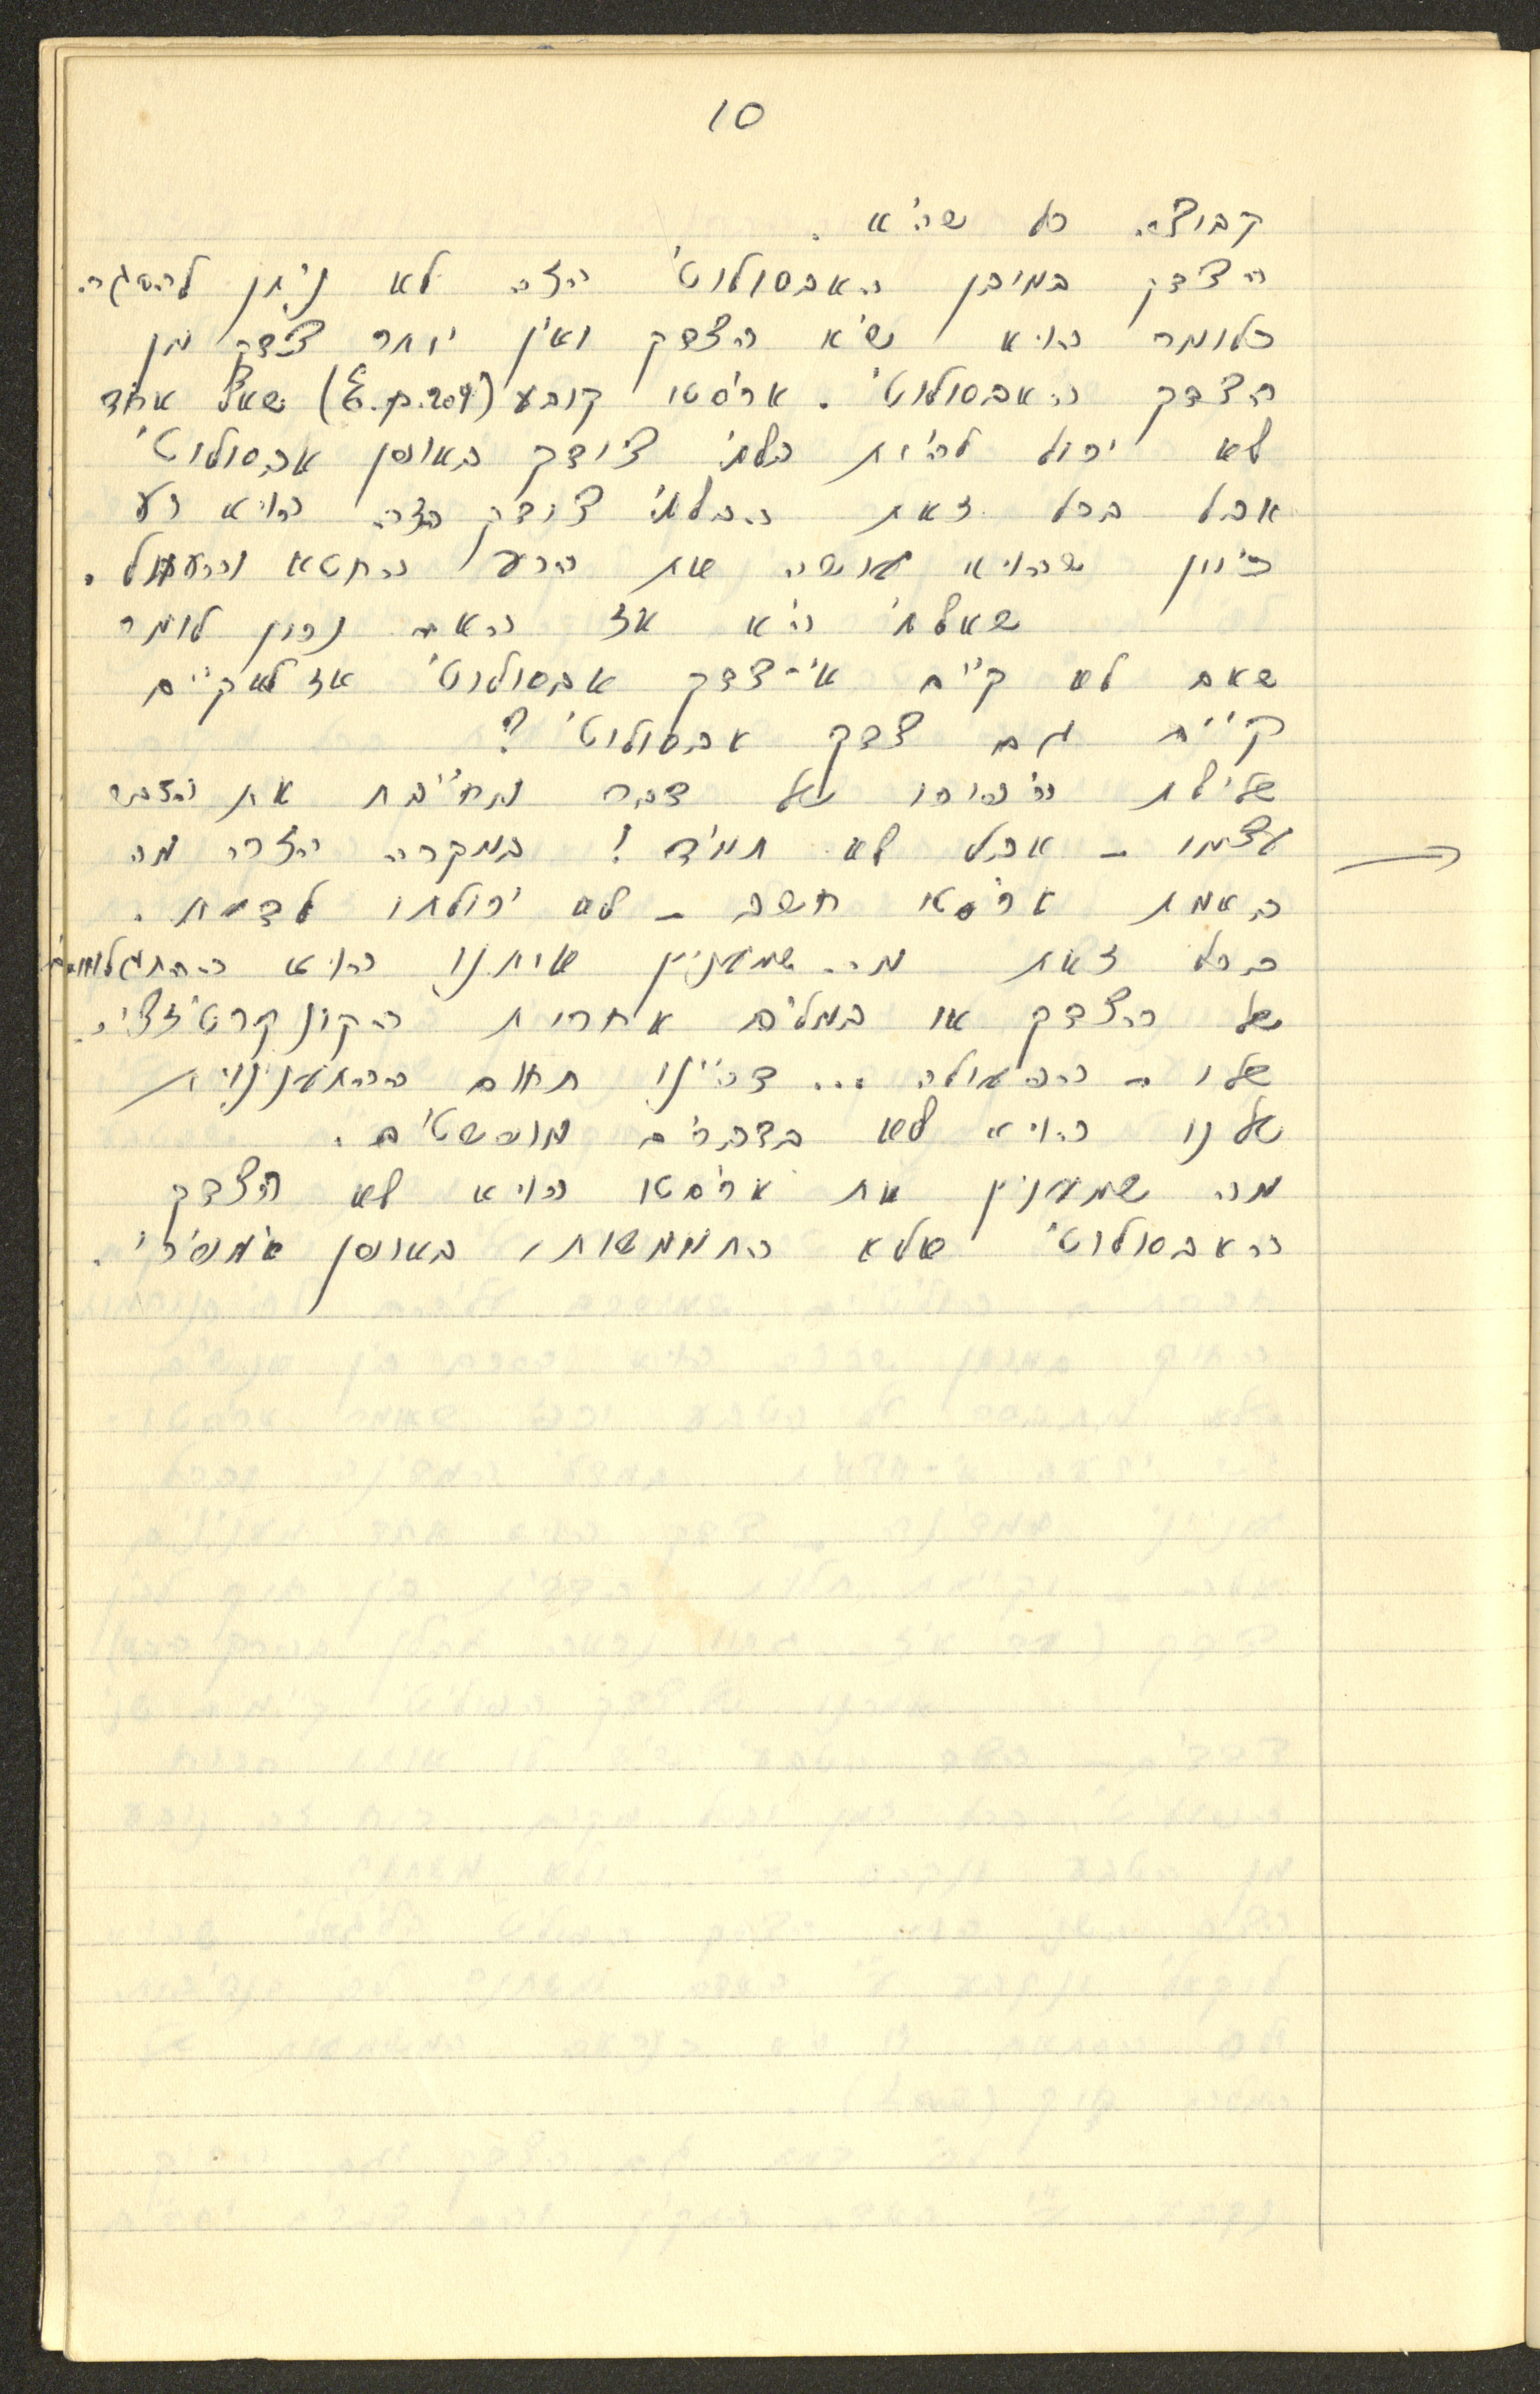 10
קבוצה כל שהיא.
הצדק במובן האבסולוטי הזה לא ניתן להשגה.
כלומר הוא שיא הצדק ואין יותר צודק מן
הצדק האבסולוטי. אריסטו קובע (E.p.204) שאף אחד
לא יכול להיות בלתי צודק באופן אבסולוטי
אבל בכל זאת הבלתי צודק הזה הוא רע
כיוון שהוא עושה את הרע החטא והעוול.
שאלתי היא אז האם נכון לומר
שאם לא קיים אי-צדק אבסולוטי אז לא קיים
קיים גם צדק אבסולוטי?
שלילת היפוכו של דבר מחייבת את הדבר
עצמו - אבל לא תמיד! במקרה הזה מה
באמת אריסטו חשב - לא יכולתי לדעת.
בכל זאת מה שמענין אותנו הוא ההתגלמות
של הצדק או במלים אחרות הקונקרטיזציה
שלו - הפעולה ... דהיינו תחום ההתענינות
שלנו הוא לא בדברים מופשטים.
מה שמענין את אריסטו הוא לא הצדק
האבסולוטי אלא התממשותו באופן אמפירי.